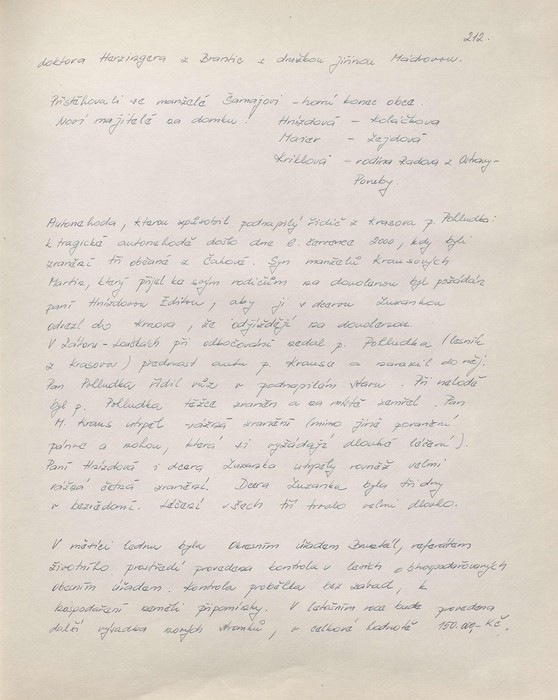 212.
doktora Herzingera z Brantic s družkou Jiřinou Mádrovou.
Přistěhovali se manželé Šamajovi - horní konec obce.
Noví majitelé na domku: Hnízdová - Koláčkova
Maner - Lejdová
Kriklová - rodina Zadova z Ostravy-
Poruby.
Autonehoda, kterou způsobil podnapilý řidič z Krasova p. Polludka:
k tragické autonehodě došlo dne 8. července 2000, kdy byli
zraněni tři občané z Čakové. Syn manželů Krausových
Martin, který přijel ke svým rodičům na dovolenou byl požádán
paní Hnízdovou Editou, aby ji s dcerou Zuzankou
odvezl do Krnova, že odjíždějí na dovolenou.
V Zátoru-Loučkách při odbočování nedal p. Polludka (lesník
z Krasova) přednost autu p. Krause a narazil do něj.
Pan Polludka řídil vůz v podnapilém stavu. Při nehodě
byl p. Polludka těžce zraněn a na místě zemřel. Pan
M. Kraus utrpěl vážná zranění (mimo jiné poranění
pánve a nohou, která si vyžádají dlouhé léčení).
Paní Hnízdová i dcera Zuzanka utrpěly rovněž velmi
vážná četná zranění. Dcera Zuzanka byla tři dny
v bezvědomí. Léčení všech tří trvalo velmi dlouho.
V měsíci lednu byla Okresním úřadem Bruntál, referátem
životního prostředí provedena kontrola v lesích obhospodařovaných
obecním úřadem. Kontrola proběhla bez závad, k
hospodaření neměli připomínky. V letošním roce bude provedena
další výsadba nových stromků, v celkové hodnotě 150.000,- Kč.